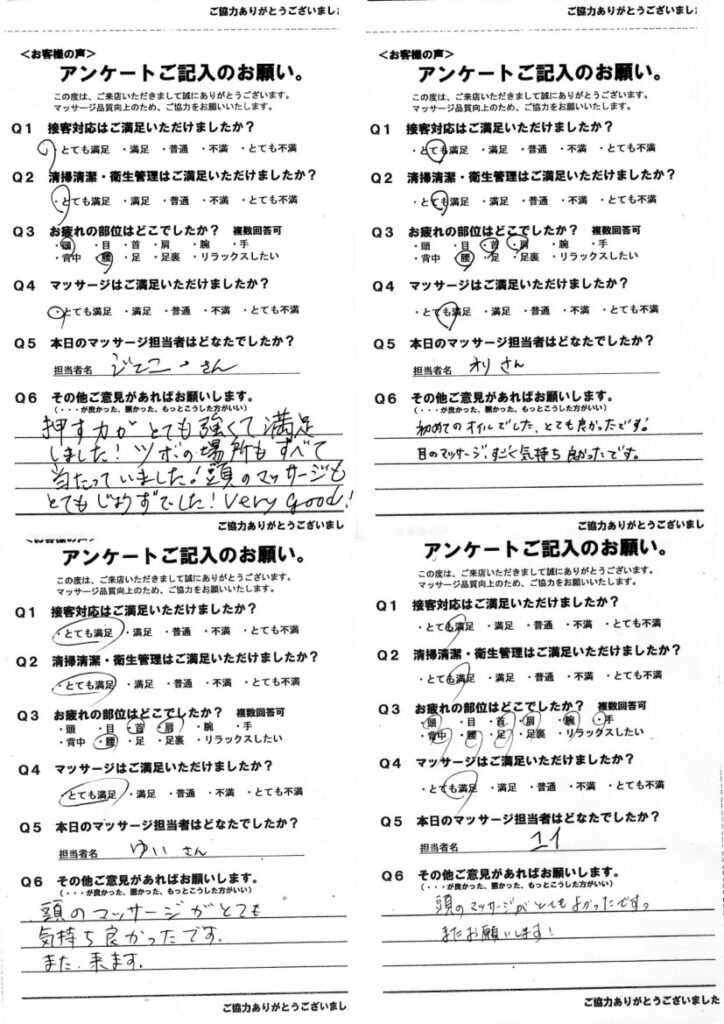 ご協力ありがとうございまし
<お客様の声>
アンケートご記入のお願い。
この度は、ご来店いただきまして誠にありがとうございます。
マッサージ品質向上のため、ご協力をお願いいたします。
Q1 接客対応はご満足いただけましたか?
・とても満足 ・満足 ・普通 ・不満 ・とても不満
Q2 清掃清潔・衛生管理はご満足いただけましたか?
・とても満足 ・満足 ・普通 ・不満 ・とても不満
Q3 お疲れの部位はどこでしたか? 複数回答可
・頭 ・目 ・首 ・肩 ・腕 ・手
・背中 ・腰 ・足 ・足裏 ・リラックスしたい
Q4 マッサージはご満足いただけましたか?
・とても満足 ・満足 ・普通 ・不満 ・とても不満
Q5 本日のマッサージ担当者はどなたでしたか?
担当者名 さん
Q6 その他ご意見があればお願いします。
(・・・が良かった、悪かった、もっとこうした方がいい)
押す力がとても強くて満足
しました!ツボの場所もすべて
当たっていました!頭のマッサージも
とてもじょうずでした!Very good!
ご協力ありがとうございまし
ご協力ありがとうございまし
<お客様の声>
アンケートご記入のお願い。
この度は、ご来店いただきまして誠にありがとうございます。
マッサージ品質向上のため、ご協力をお願いいたします。
Q1 接客対応はご満足いただけましたか?
・とても満足 ・満足 ・普通 ・不満 ・とても不満
Q2 清掃清潔・衛生管理はご満足いただけましたか?
・とても満足 ・満足 ・普通 ・不満 ・とても不満
Q3 お疲れの部位はどこでしたか? 複数回答可
・頭 ・目 ・首 ・肩 ・腕 ・手
・背中 ・腰 ・足 ・足裏 ・リラックスしたい
Q4 マッサージはご満足いただけましたか?
・とても満足 ・満足 ・普通 ・不満 ・とても不満
Q5 本日のマッサージ担当者はどなたでしたか?
担当者名 オリさん
Q6 その他ご意見があればお願いします。
(・・・が良かった、悪かった、もっとこうした方がいい)
初めてのオイルでした、とても良かったです!
目のマッサージ、すごく気持ち良かったです。
ご協力ありがとうございまし
<お客様の声>
アンケートご記入のお願い。
この度は、ご来店いただきまして誠にありがとうございます。
マッサージ品質向上のため、ご協力をお願いいたします。
Q1 接客対応はご満足いただけましたか?
・とても満足 ・満足 ・普通 ・不満 ・とても不満
Q2 清掃清潔・衛生管理はご満足いただけましたか?
・とても満足 ・満足 ・普通 ・不満 ・とても不満
Q3 お疲れの部位はどこでしたか? 複数回答可
・頭 ・目 ・首 ・肩 ・腕 ・手
・背中 ・腰 ・足 ・足裏 ・リラックスしたい
Q4 マッサージはご満足いただけましたか?
・とても満足 ・満足 ・普通 ・不満 ・とても不満
Q5 本日のマッサージ担当者はどなたでしたか?
担当者名 ゆいさん
Q6 その他ご意見があればお願いします。
(・・・が良かった、悪かった、もっとこうした方がいい)
頭のマッサージがとても
気持ち良かったです.
また.来ます.
ご協力ありがとうございまし
アンケートご記入のお願い。
この度は、ご来店いただきまして誠にありがとうございます。
マッサージ品質向上のため、ご協力をお願いいたします。
Q1 接客対応はご満足いただけましたか?
・とても満足 ・満足 ・普通 ・不満 ・とても不満
Q2 清掃清潔・衛生管理はご満足いただけましたか?
・とても満足 ・満足 ・普通 ・不満 ・とても不満
Q3 お疲れの部位はどこでしたか? 複数回答可
・頭 ・目 ・首 ・肩 ・腕 ・手
・背中 ・腰 ・足 ・足裏 ・リラックスしたい
Q4 マッサージはご満足いただけましたか?
・とても満足 ・満足 ・普通 ・不満 ・とても不満
Q5 本日のマッサージ担当者はどなたでしたか?
担当者名 ユイ
Q6 その他ご意見があればお願いします。
(・・・が良かった、悪かった、もっとこうした方がいい)
頭のマッサージがとてもよかったです。
またお願いします!
ご協力ありがとうございました